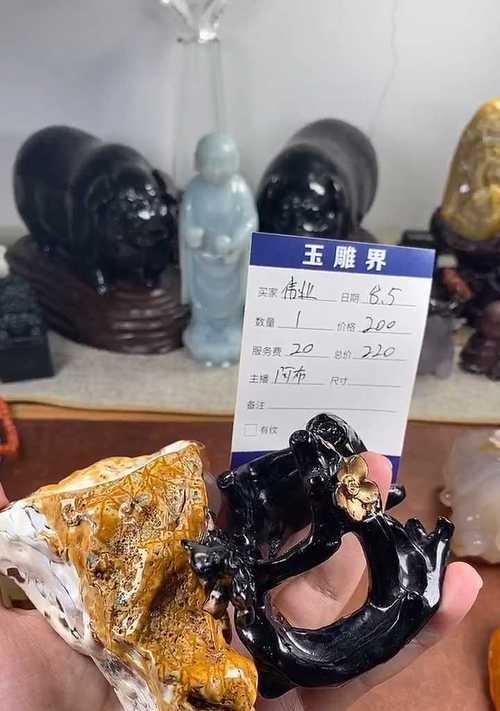 玉雕界
买家 伟业 日期 8.5
数量 1 价格 200
服务费 20 总价 220
主播 阿布 尺寸
备注
有纹